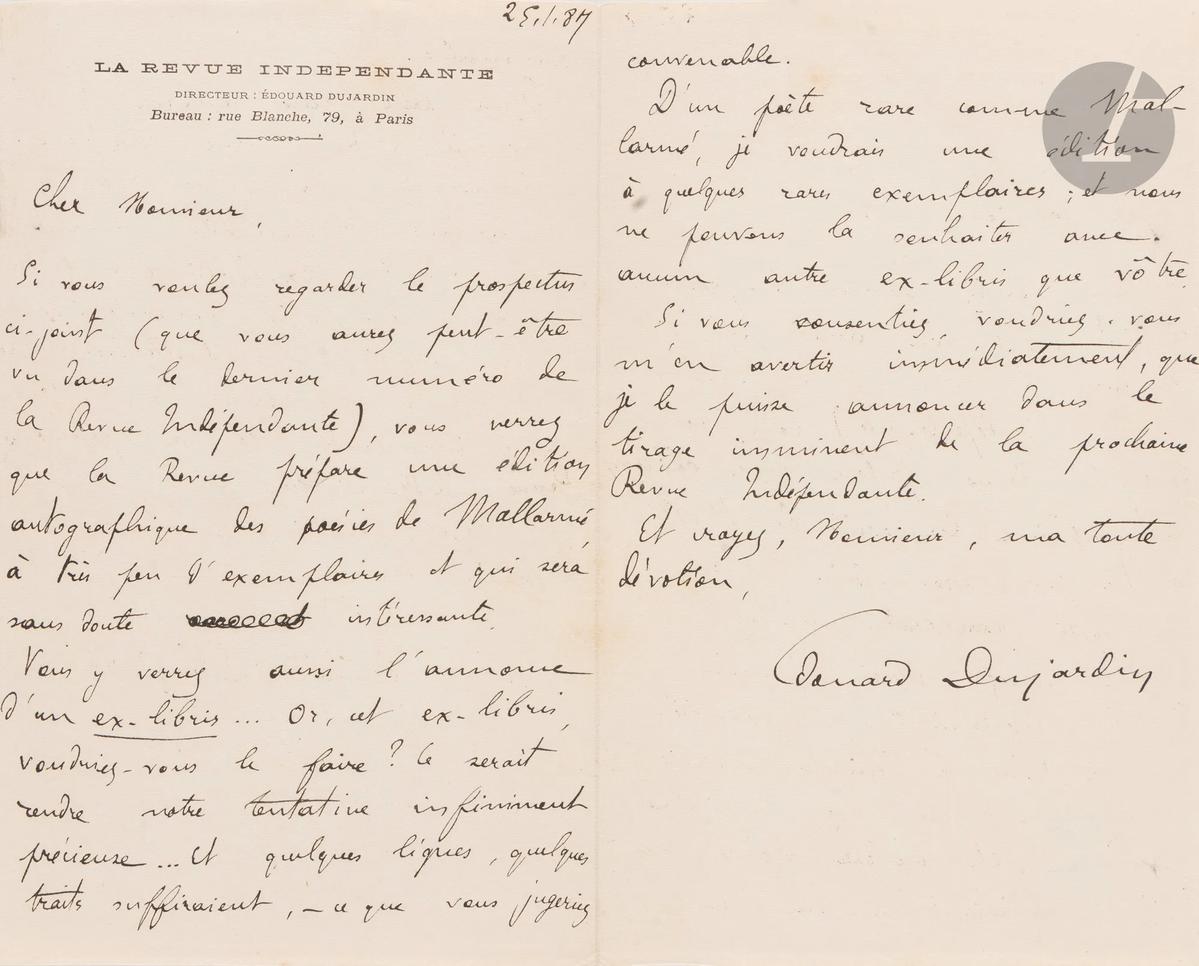 25.1.87
LA REVUE INDEPENDANTE
DIRECTEUR : ÉDOUARD DUJARDIN
Bureau : rue Blanche, 79, à Paris
Cher Monsieur,
Si vous voulez regarder le prospectus
ci-joint (que vous aurez peut-être
vu dans le dernier numéro de
la Revue Indépendante), vous verrez
que la Revue prépare une édition
autographique des poésies de Mallarmé,
à très peu d'exemplaires et qui sera
sans doute intéressante.
Vous y verrez aussi l'annonce
d'un ex-libris... Or, cet ex-libris,
voudriez-vous le faire ? Ce serait
rendre notre tentative infiniment
précieuse... Et quelques lignes, quelques
traits suffiraient, – ce que vous jugeriez
convenable.
D'un poète rare comme Mal-
larmé, je voudrais une édition
à quelques rares exemplaires ; et nous
ne pouvons la souhaiter avec
aucun autre ex-libris que vôtre.
Si vous consentiez, voudriez-vous
m'en avertir immédiatement, que
je le puisse annoncer dans le
tirage imminent de la prochaine
Revue Indépendante.
Et croyez, Monsieur, ma toute
dévotion,
Edouard Dujardin